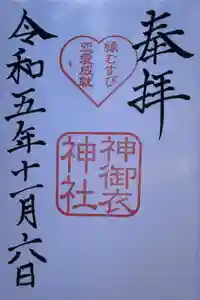 奉拝
縁むすび
恋愛成就
神御衣
神社
令和五年十一月六日